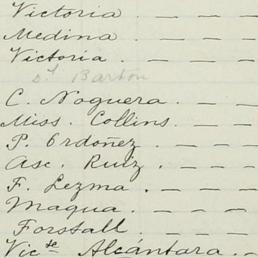 Victoria . — — —
Medina — — —
Victoria — — —
d.l Barton
C. Noguera . — — —
Miss. Collins . — — —
P. Ordóñez . — — —
Asc. Ruiz . — — —
F. Lezma . — — —
Maqua . — — —
Forstall . — — —
Vic.te Alcántara . — —